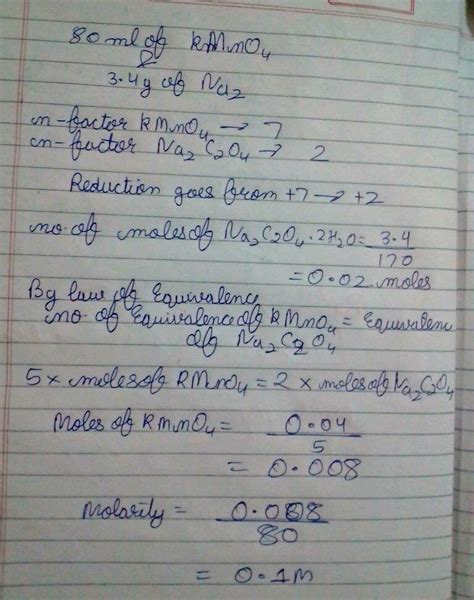 80 ml of kMnO4
&
3.4g of Na2
n-factor kMnO4 → 7
n-factor Na2C2O4 → 2
Reduction goes from +7 → +2
no. of moles of Na2C2O4·2H2O = 3.4
170
= 0.02 moles
By law of Equivalence
no. of Equivalence of kMnO4 = Equivalenc
of Na2C2O4
5 x moles of kMnO4 = 2 x moles of Na2C2O4
Moles of kMnO4 = 0.04
5
= 0.008
Molarity = 0.008
80
= 0.1M